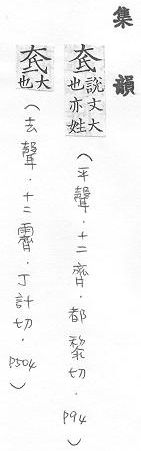 集韻
㚣 說文大也亦姓（平聲．十二齊．都黎切．P94）
大也（去聲．十二霽．丁計切．P504）